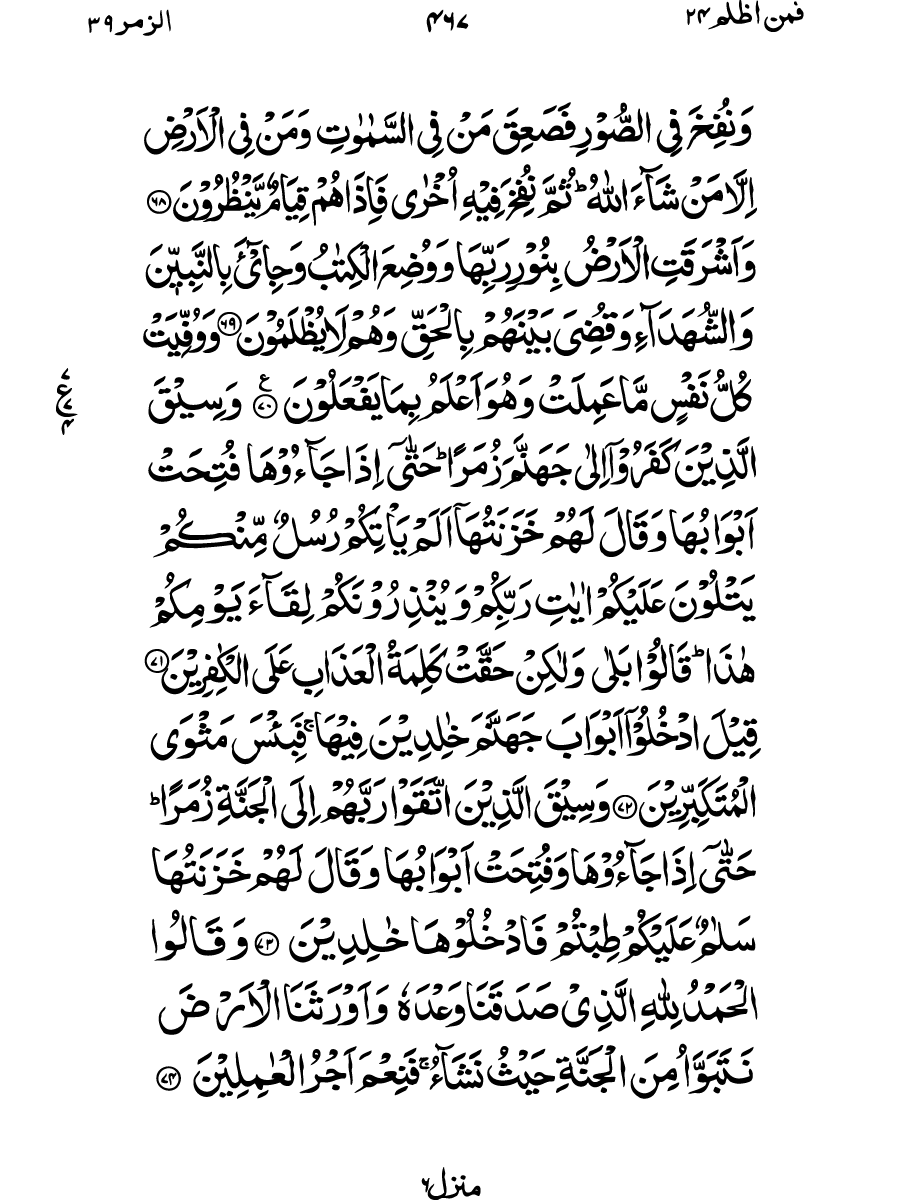 فمن اظلم ۲۴
۴۶۷
الزمر ۳۹
وَنُفِخَ فِي الصُّوْرِ فَصَعِقَ مَنْ فِي السَّمٰوٰتِ وَمَنْ فِي الْاَرْضِ
اِلَّا مَنْ شَآءَ اللّٰهُ ؕ ثُمَّ نُفِخَ فِيْهِ اُخْرٰى فَاِذَا هُمْ قِيَامٌ يَّنْظُرُوْنَ ۝۶۸
وَاَشْرَقَتِ الْاَرْضُ بِنُوْرِ رَبِّهَا وَوُضِعَ الْكِتٰبُ وَجِايْٓءَ بِالنَّبِيّٖنَ
وَالشُّهَدَآءِ وَقُضِيَ بَيْنَهُمْ بِالْحَقِّ وَهُمْ لَا يُظْلَمُوْنَ ۝۶۹ وَوُفِّيَتْ
كُلُّ نَفْسٍ مَّا عَمِلَتْ وَهُوَ اَعْلَمُ بِمَا يَفْعَلُوْنَ ۝۷۰ ع وَسِيْقَ
۷ ع ۷ ۴
الَّذِيْنَ كَفَرُوْٓا اِلٰى جَهَنَّمَ زُمَرًا ؕ حَتّٰٓى اِذَا جَآءُوْهَا فُتِحَتْ
اَبْوَابُهَا وَقَالَ لَهُمْ خَزَنَتُهَآ اَلَمْ يَاْتِكُمْ رُسُلٌ مِّنْكُمْ
يَتْلُوْنَ عَلَيْكُمْ اٰيٰتِ رَبِّكُمْ وَيُنْذِرُوْنَكُمْ لِقَآءَ يَوْمِكُمْ
هٰذَا ؕ قَالُوْا بَلٰى وَلٰكِنْ حَقَّتْ كَلِمَةُ الْعَذَابِ عَلَى الْكٰفِرِيْنَ ۝۷۱
قِيْلَ ادْخُلُوْٓا اَبْوَابَ جَهَنَّمَ خٰلِدِيْنَ فِيْهَا ۚ فَبِئْسَ مَثْوَى
الْمُتَكَبِّرِيْنَ ۝۷۲ وَسِيْقَ الَّذِيْنَ اتَّقَوْا رَبَّهُمْ اِلَى الْجَنَّةِ زُمَرًا ؕ
حَتّٰٓى اِذَا جَآءُوْهَا وَفُتِحَتْ اَبْوَابُهَا وَقَالَ لَهُمْ خَزَنَتُهَا
سَلٰمٌ عَلَيْكُمْ طِبْتُمْ فَادْخُلُوْهَا خٰلِدِيْنَ ۝۷۳ وَقَالُوا
الْحَمْدُ لِلّٰهِ الَّذِيْ صَدَقَنَا وَعْدَهٗ وَاَوْرَثَنَا الْاَرْضَ
نَتَبَوَّاُ مِنَ الْجَنَّةِ حَيْثُ نَشَآءُ ۚ فَنِعْمَ اَجْرُ الْعٰمِلِيْنَ ۝۷۴
منزل ۶